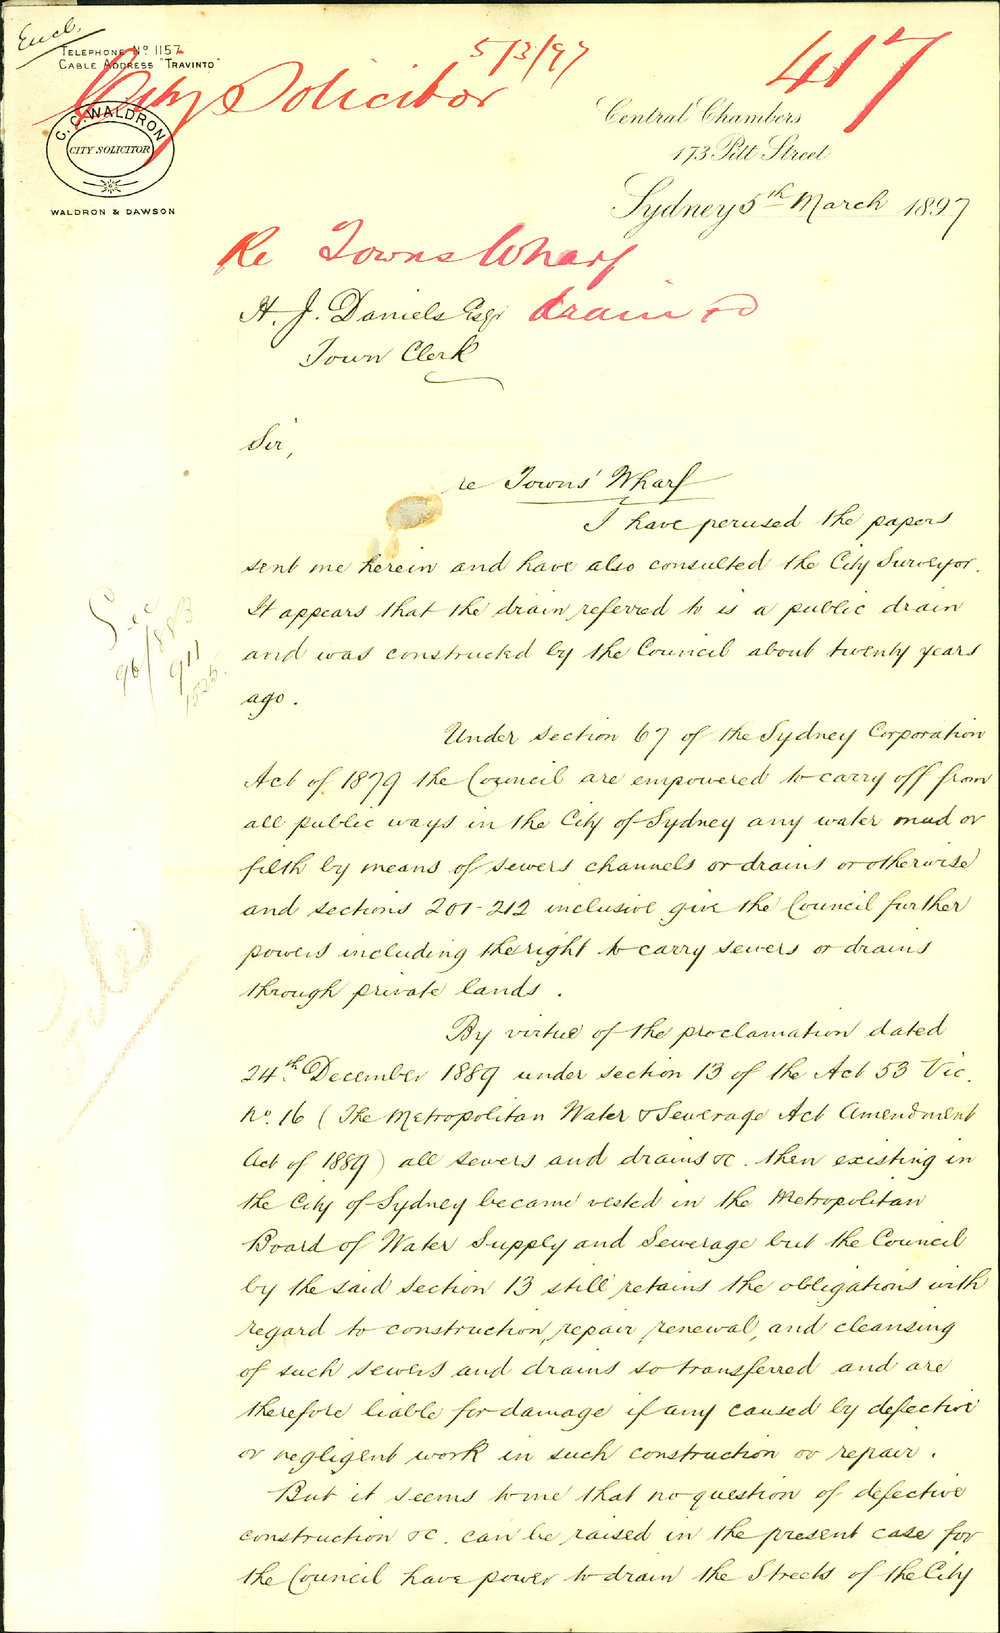 Encl.
5/3/97
417
TELEPHONE No 1157
CABLE ADDRESS "TRAVINTO"
City Solicitor
C. C. WALDRON
CITY SOLICITOR
WALDRON & DAWSON
Central Chambers
173 Pitt Street
Sydney 5th March 1897
Re Towns Wharf
drain &c
H. J. Daniels Esqr
Town Clerk
Sir,
re Towns' Wharf
I have perused the papers
sent me herein and have also consulted the City Surveyor.
It appears that the drain referred to is a public drain
and was constructed by the Council about twenty years
ago.
See
96/883
911
1525
Under section 67 of the Sydney Corporation
Act of 1879 the Council are empowered to carry off from
all public ways in the City of Sydney any water mud or
filth by means of sewers channels or drains or otherwise
and sections 201-212 inclusive give the Council further
powers including the right to carry sewers or drains
through private lands.
By virtue of the proclamation dated
24th December 1889 under section 13 of the Act 53 Vic.
No. 16 (The Metropolitan Water & Sewerage Act Amendment
Act of 1889) all sewers and drains &c. then existing in
the City of Sydney became vested in the Metropolitan
Board of Water Supply and Sewerage but the Council
by the said section 13 still retains the obligations with
regard to construction, repair, renewal, and cleansing
of such sewers and drains so transferred and are
therefore liable for damage if any caused by defective
or negligent work in such construction or repair.
But it seems to me that no question of defective
construction &c. can be raised in the present case for
the Council have power to drain the Streets of the City